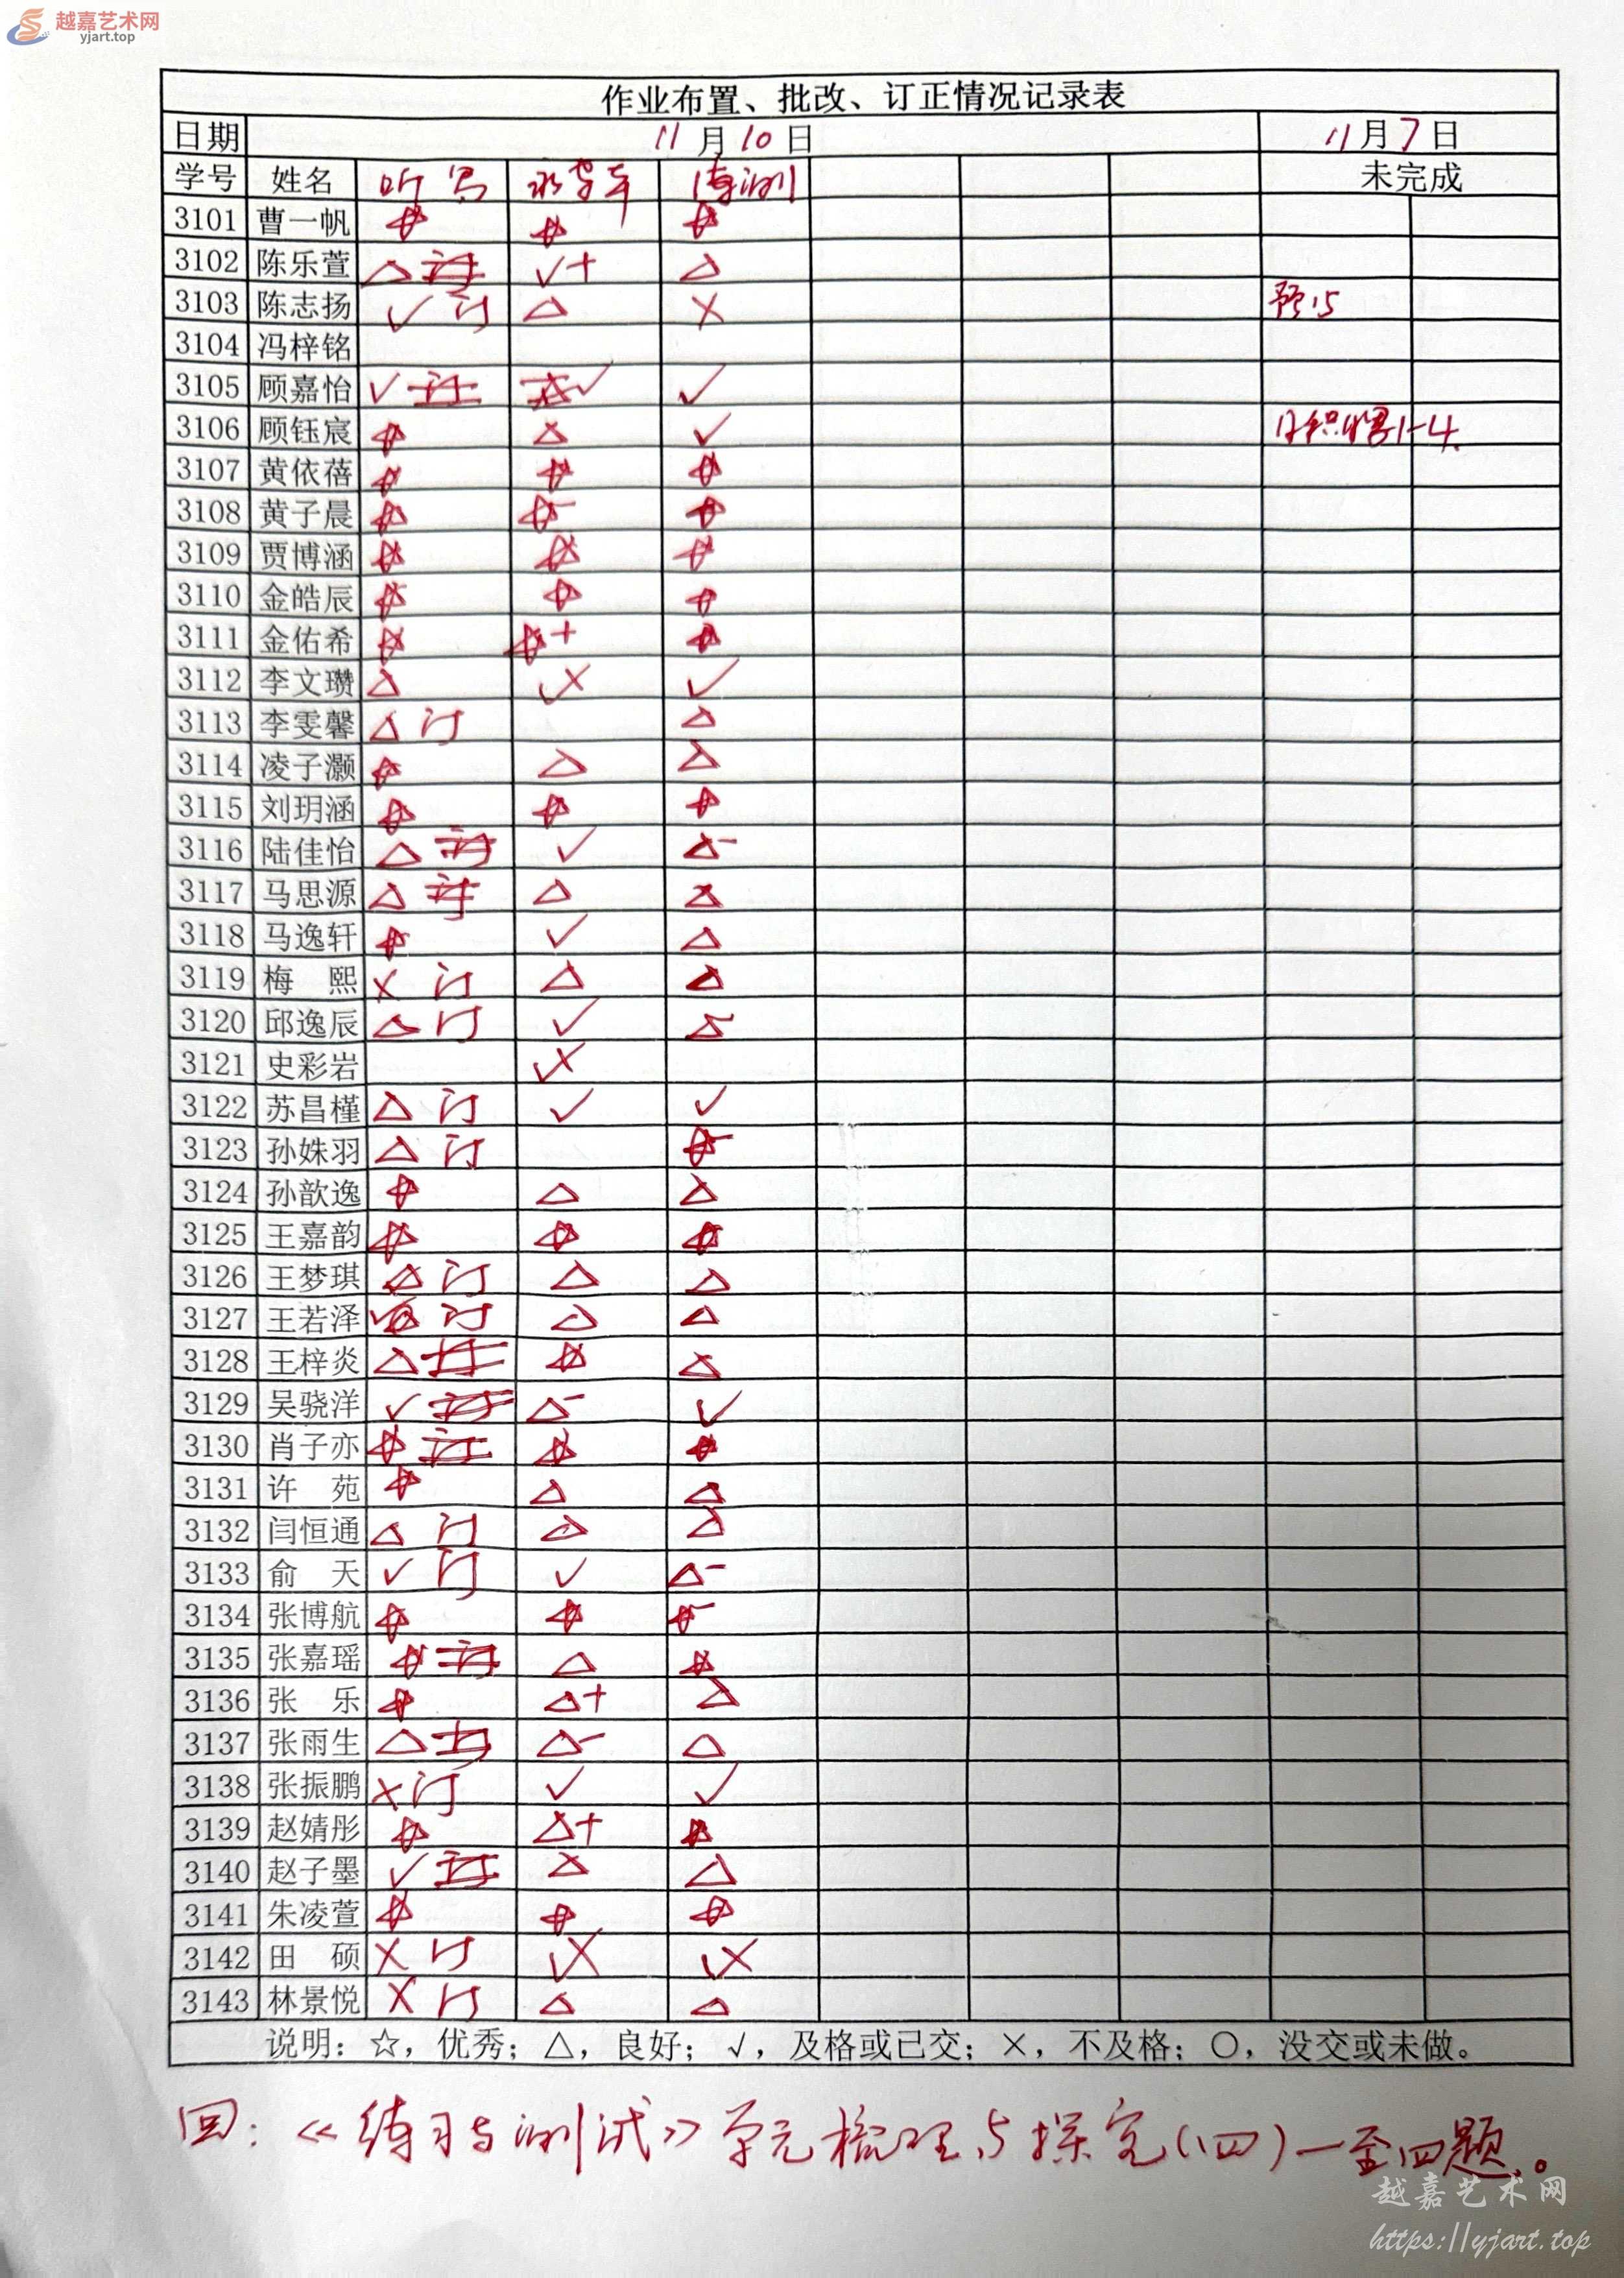 越嘉艺术网
yjart.top
作业布置、批改、订正情况记录表
日期 11月10日 11月7日
学号 姓名 听写 练测 未完成
3101 曹一帆 ☆ ☆ ☆
3102 陈乐萱 △ 订 √+ △
3103 陈志扬 √ 订 △ × 预15
3104 冯梓铭
3105 顾嘉怡 √ 订 √ √
3106 顾钰宸 ☆ △ √ 1-4
3107 黄依蓓 ☆ ☆ ☆
3108 黄子晨 ☆ ☆- ☆
3109 贾博涵 ☆ ☆ ☆
3110 金皓辰 ☆ ☆ ☆
3111 金佑希 ☆ ☆+ ☆
3112 李文瓒 △ √× √
3113 李雯馨 △ 订 △
3114 凌子灏 ☆ △ △
3115 刘玥涵 ☆ ☆ ☆
3116 陆佳怡 △ 订 √ △-
3117 马思源 △ 订 △ ☆
3118 马逸轩 ☆ √ △
3119 梅 熙 × 订 △ △
3120 邱逸辰 △ 订 √ △-
3121 史彩岩 √×
3122 苏昌槿 △ 订 √ √
3123 孙姝羽 △ 订 ☆-
3124 孙歆逸 ☆ △ △
3125 王嘉韵 ☆ ☆ ☆
3126 王梦琪 △ 订 △ △
3127 王若泽 订 △ △
3128 王梓炎 △ 订 ☆ △
3129 吴骁洋 √ 订 △- √
3130 肖子亦 ☆ 订 ☆ ☆
3131 许 苑 ☆ △ △
3132 闫恒通 △ 订 △ △
3133 俞 天 √ 订 √ △-
3134 张博航 ☆ ☆ ☆-
3135 张嘉瑶 ☆ 订 △ ☆
3136 张 乐 ☆ △+ △
3137 张雨生 △ 订 △- △
3138 张振鹏 × 订 √ √
3139 赵婧彤 ☆ △+ ☆
3140 赵子墨 √ 订 △ △
3141 朱凌萱 ☆ ☆ ☆
3142 田 硕 × 订 √× √×
3143 林景悦 × 订 △ △
说明：☆，优秀；△，良好；√，及格或已交；×，不及格；○，没交或未做。
回：《练习与测试》单元梳理与探究(四)一至四题。
越嘉艺术网
https://yjart.top